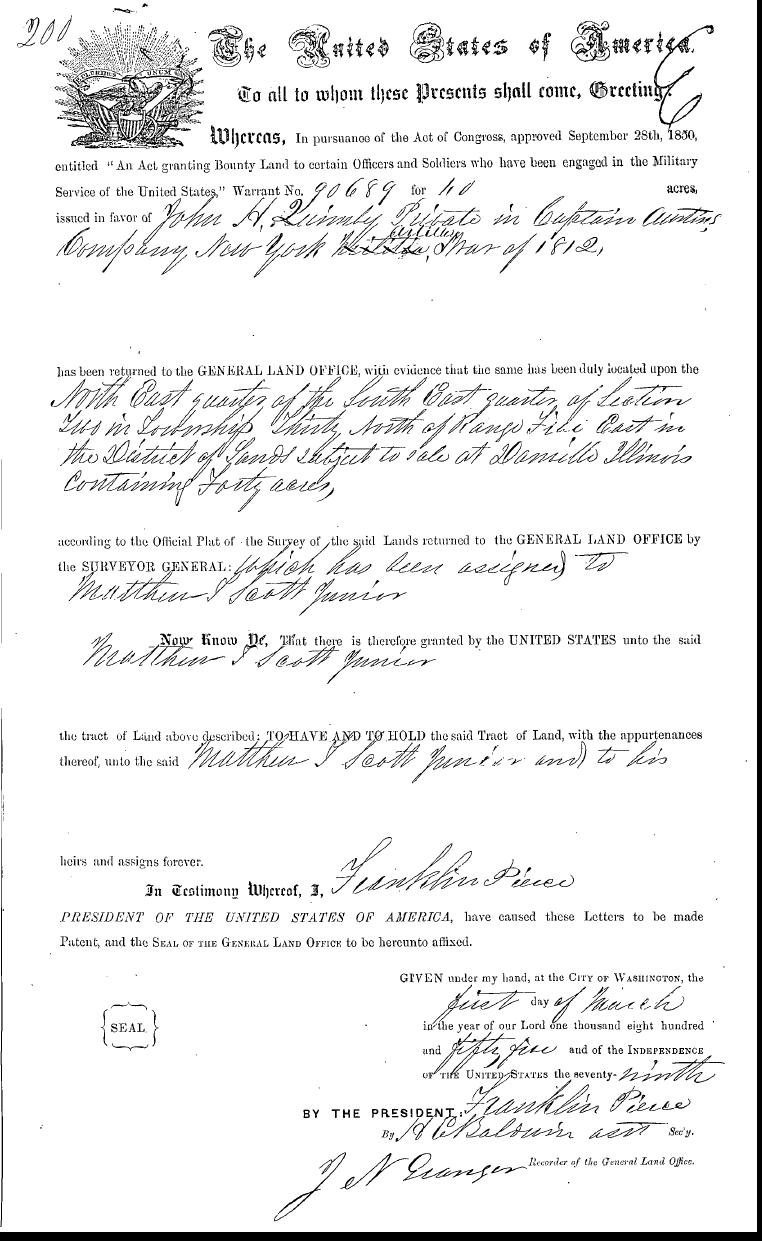 200
The United States of America.
E PLURIBUS UNUM
To all to whom these Presents shall come, Greeting:
Whereas, In pursuance of the Act of Congress, approved September 28th, 1850,
entitled "An Act granting Bounty Land to certain Officers and Soldiers who have been engaged in the Military
Service of the United States," Warrant No. 90689 for 40 acres,
issued in favor of John H. Quimby Private in Captain Austins
Artillery
Company New York Militia, War of 1812,
has been returned to the GENERAL LAND OFFICE, with evidence that the same has been duly located upon the
North East quarter of the South East quarter of Section
Two in Township Thirty North of Range Five East in
the District of Lands subject to sale at Danville Illinois
Containing Forty acres,
according to the Official Plat of the Survey of the said Lands returned to the GENERAL LAND OFFICE by
the SURVEYOR GENERAL: which has been assigned to
Matthew T Scott Junior
Now Know Ye, That there is therefore granted by the UNITED STATES unto the said
Matthew T Scott Junior
the tract of Land above described: TO HAVE AND TO HOLD the said Tract of Land, with the appurtenances
thereof, unto the said Matthew T Scott Junior and to his
heirs and assigns forever.
In Testimony Whereof, I, Franklin Pierce
PRESIDENT OF THE UNITED STATES OF AMERICA, have caused these Letters to be made
Patent, and the SEAL OF THE GENERAL LAND OFFICE to be hereunto affixed.
GIVEN under my hand, at the CITY OF WASHINGTON, the
first day of March
in the year of our Lord one thousand eight hundred
and fifty five and of the INDEPENDENCE
OF THE UNITED STATES the seventy-ninth
SEAL
BY THE PRESIDENT: Franklin Pierce
By H E Baldwin asst Sec'y.
J N Granger Recorder of the General Land Office.